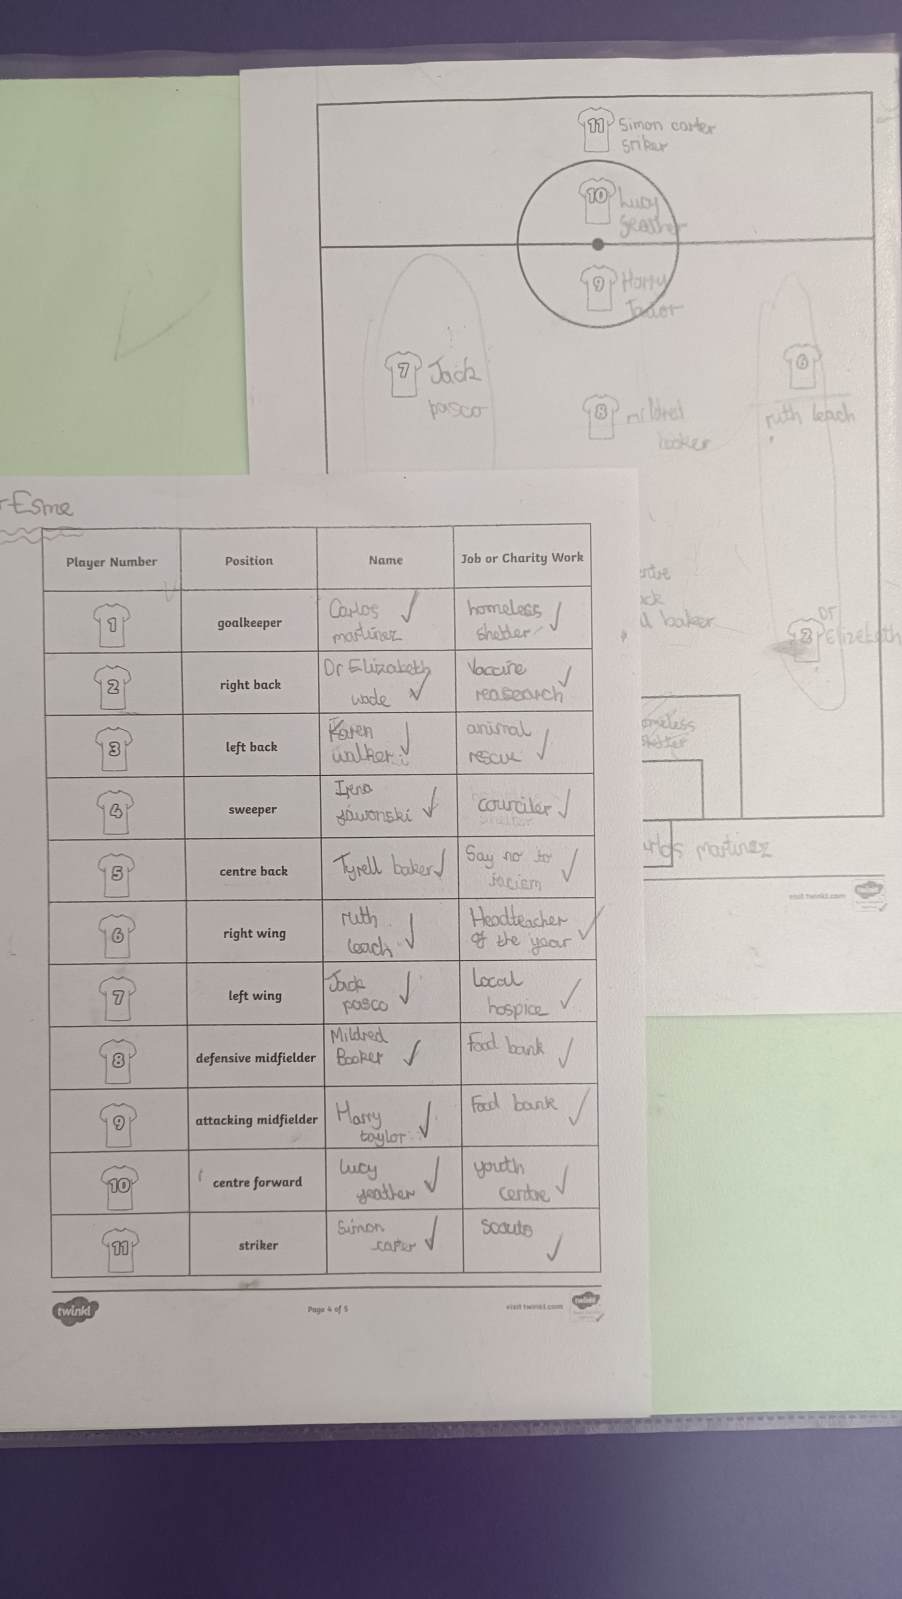 11 Simon carter
sriker
10 Lucy
yeather
9 Harry
Tailor
7 Jack
pasco
8 mildred
booker
6
ruth leach
Esme
Player Number Position Name Job or Charity Work
1 goalkeeper Carlos martinez homeless shelder
2 right back Dr Elizabeth wade Vaccine reasearch
3 left back Karen walker animal rescue
4 sweeper Irena jawonski counciler
5 centre back Tyrell baker Say no to racism
6 right wing ruth leach Headteacher of the year
7 left wing Jack pasco Local hospice
8 defensive midfielder Mildred Booker food bank
9 attacking midfielder Harry taylor Food bank
10 centre forward Lucy yeather youth centre
11 striker Simon carter Scouts
twinkl Page 4 of 5 visit twinkl.com
baker
dr
2 Elizebeth
omeless
shelter
martinez
visit twinkl.com